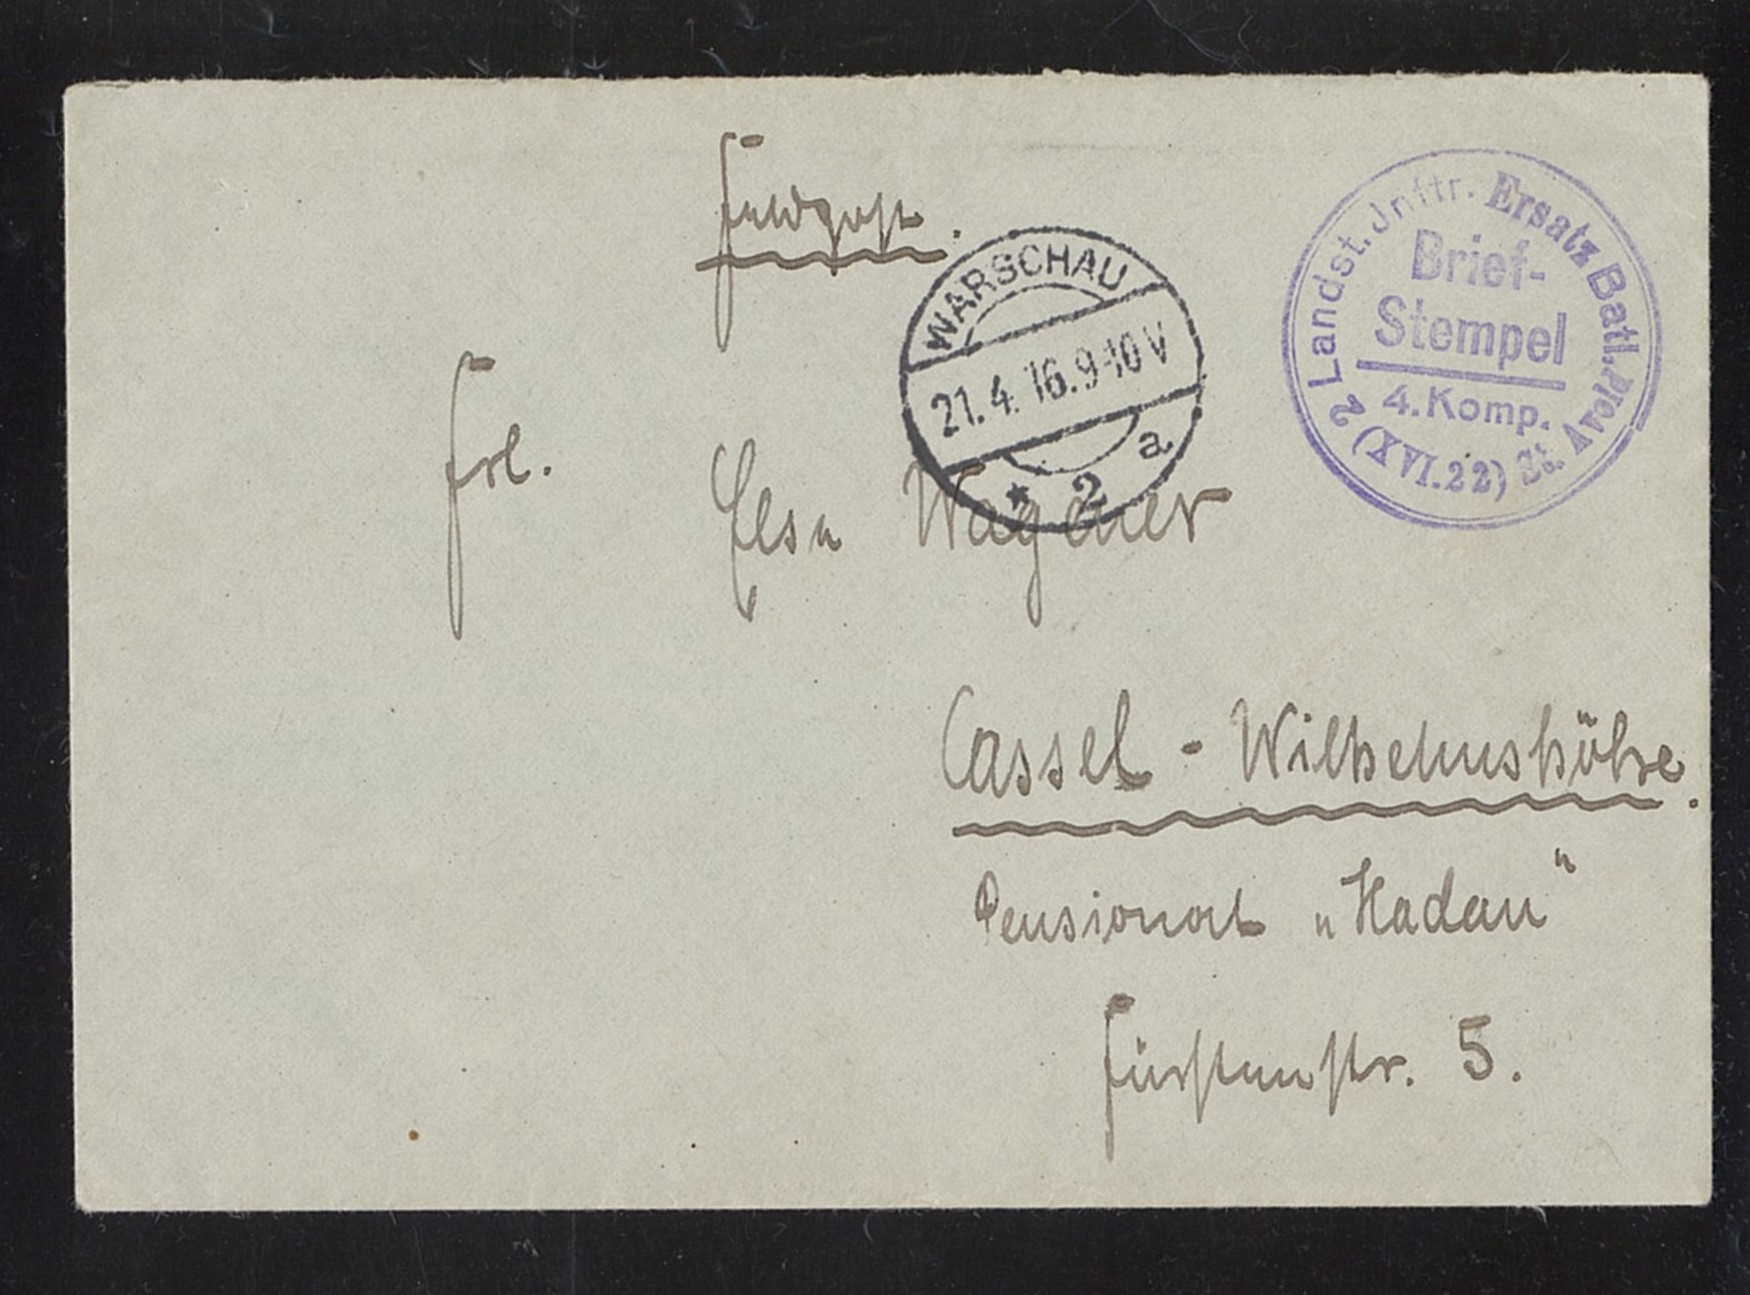 Feldpost.
WARSCHAU
21.4.16.9-10V
* 2 a
2 Landst. Jnftr. Ersatz Batl. St. Avold (XVI.22)
Brief-
Stempel
4. Komp.
Frl. Elsa Wagner
Cassel - Wilhelmshöhe.
Pensionat „Hadau“
Fürstenstr. 5.